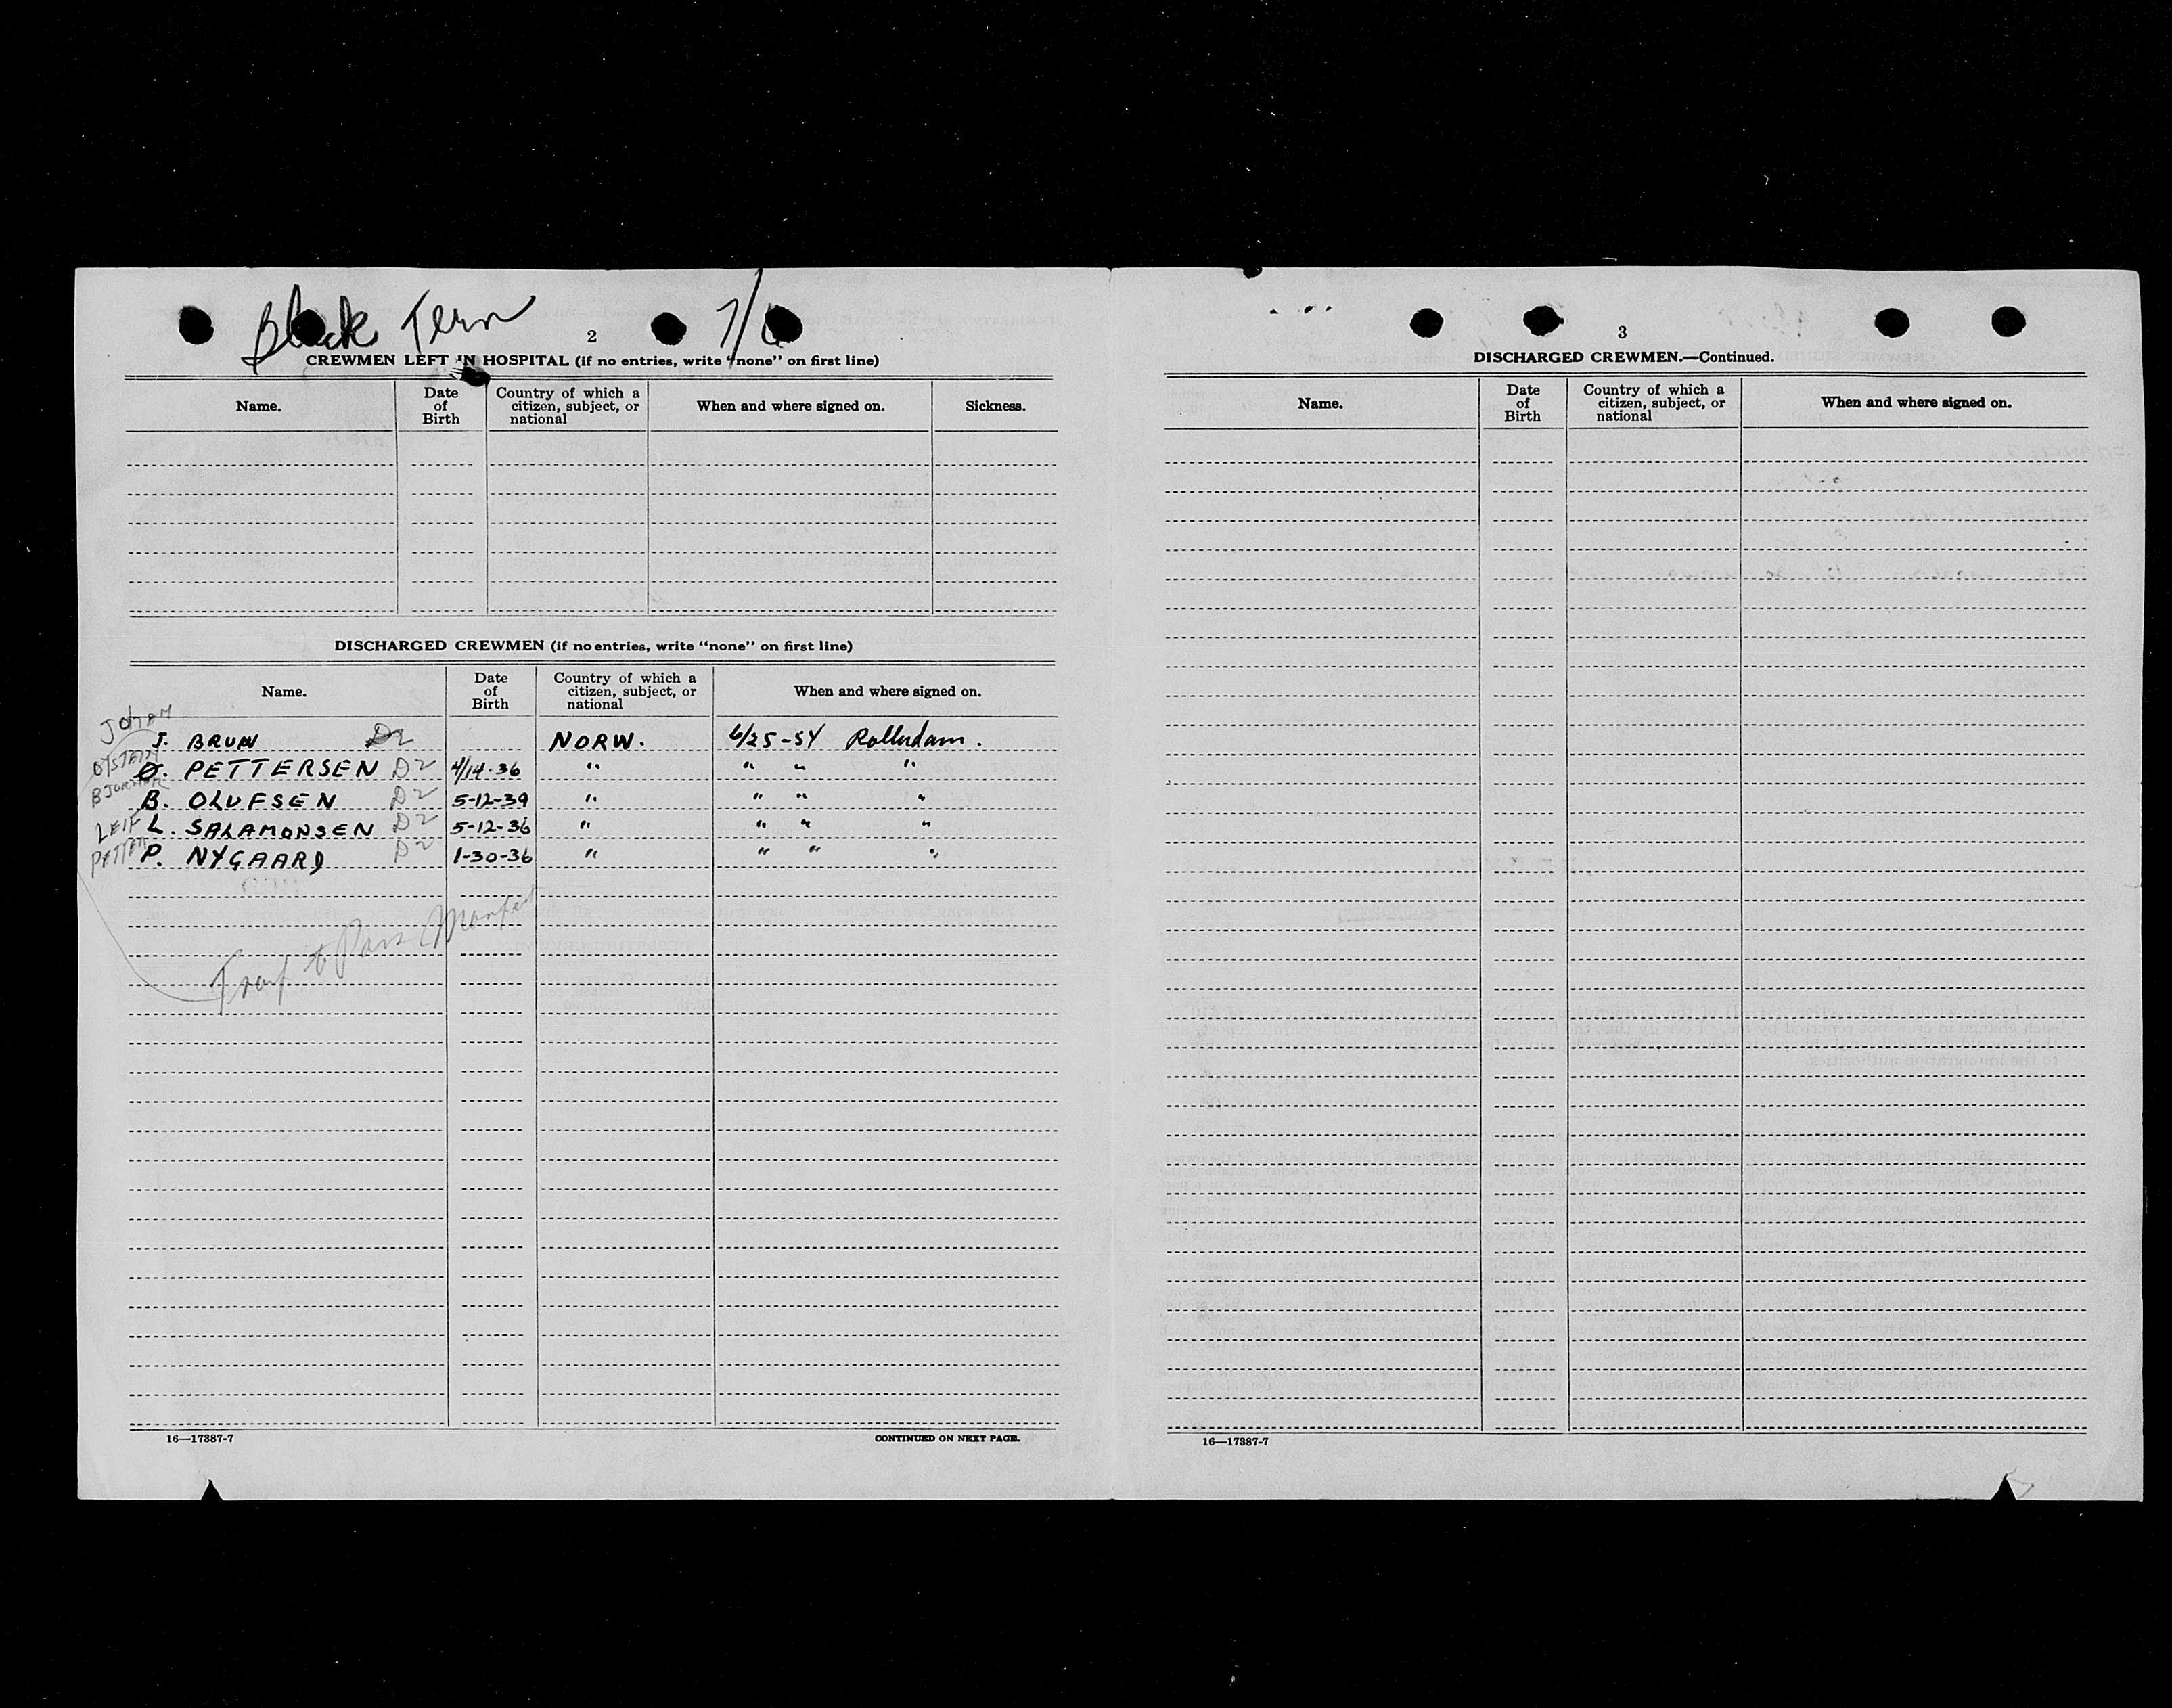 Black Tern 7/6
2
CREWMEN LEFT IN HOSPITAL (if no entries, write "none" on first line)
Name. Date of Birth Country of which a citizen, subject, or national When and where signed on. Sickness.
DISCHARGED CREWMEN (if no entries, write "none" on first line)
Name. Date of Birth Country of which a citizen, subject, or national When and where signed on.
JOHAN
J. BRUN D2 NORW. 6/25-54 Rotterdam.
OYSTEIN Ø. PETTERSEN D2 4/14-36 " " " "
B. OLUFSEN D2 5-12-39 " " " "
LEIF L. SALAMONSEN D2 5-12-36 " " " "
PETTER P. NYGAARD D2 1-30-36 " " " "
Transf to Pass Manifest
16—17387-7 CONTINUED ON NEXT PAGE.
3
DISCHARGED CREWMEN.—Continued.
Name. Date of Birth Country of which a citizen, subject, or national When and where signed on.
16—17387-7